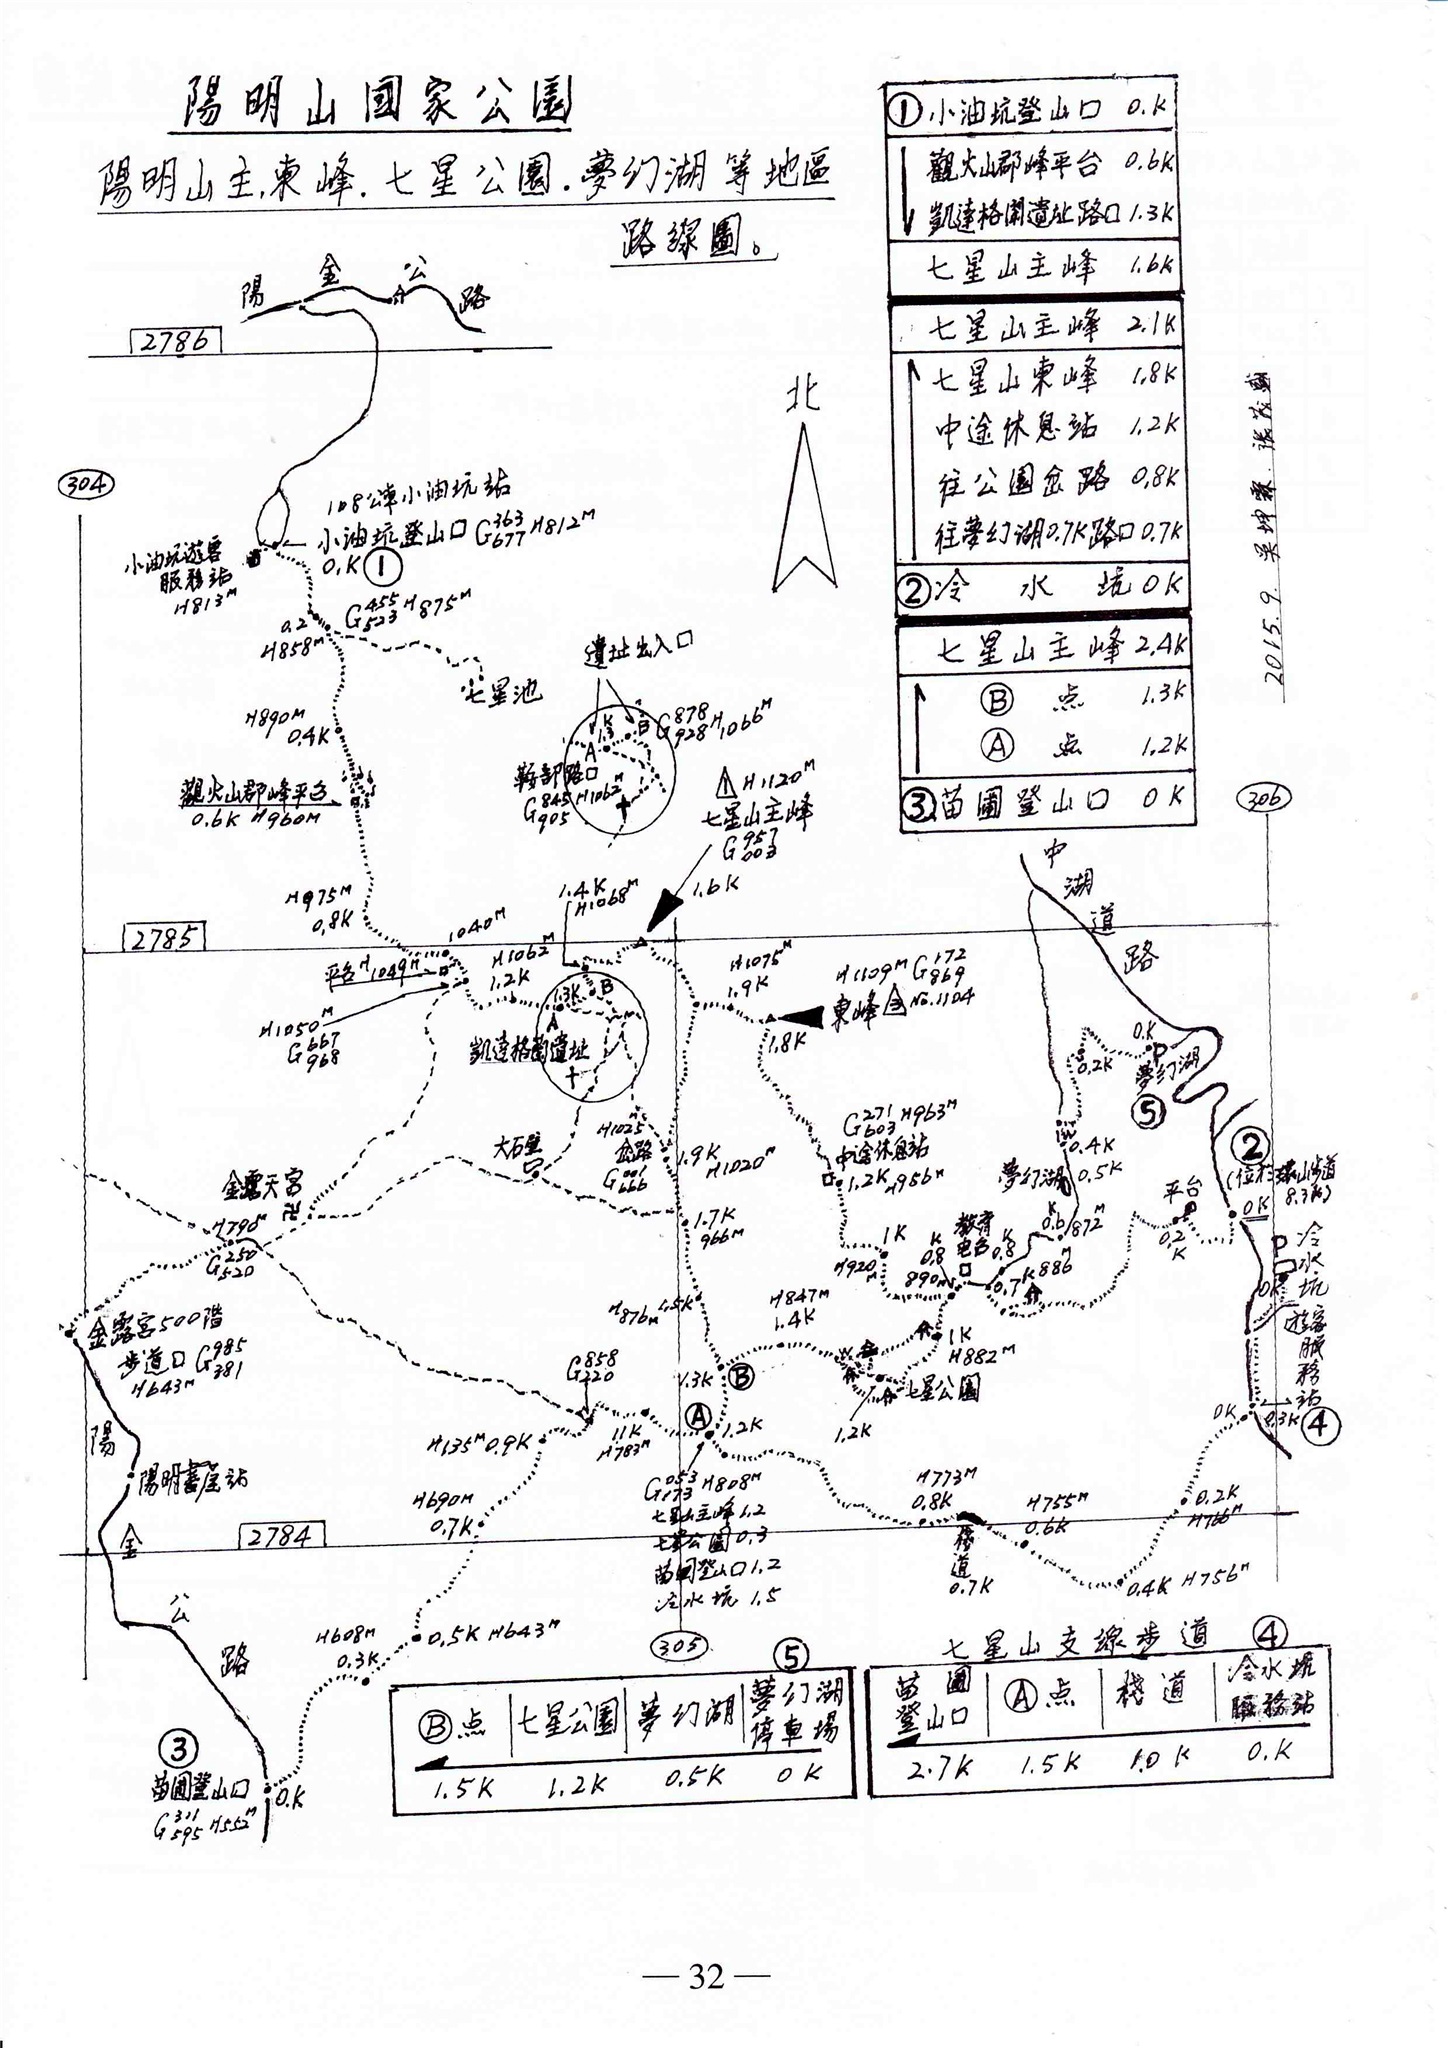 陽明山國家公園
陽明山主.東峰.七星公園.夢幻湖等地區
路線圖。
①小油坑登山口 0.K
觀火山郡峰平台 0.6K
凱達格蘭遺址路口 1.3K
七星山主峰 1.6K
七星山主峰 2.1K
七星山東峰 1.8K
中途休息站 1.2K
往公園岔路 0.8K
往夢幻湖0.7K路口 0.7K
②冷水坑 0K
七星山主峰 2.4K
Ⓑ 点 1.3K
Ⓐ 点 1.2K
③苗圃登山口 0K
2015.9.
陽金公路
2786
北
304
108公車小油坑站
小油坑登山口 G363 677 H812M
0.K ①
小油坑遊客
服務站
H813M
G455 523 H875M
0.2
H858M
七星池
遺址出入口
H890M
0.4K
A 1.3K B
G878 928 H1066M
鞍部路口
G845 905 H1062M
觀火山郡峰平台
0.6K H960M
H1120M
七星山主峰
G957 003
1.6K
306
中湖道路
H975M
0.8K
1.4K
H1068M
2785
1040M
平台H1049M
H1062M
1.2K
H1075M
1.9K
H1109M G172 869
東峰 No.1104
1.8K
1.3K
A
B
H1050M
G667 968
凱達格蘭遺址
0.K
P
夢幻湖
⑤
0.2K
G271 603 H963M
中途休息站
1.2K H956M
H1025M
岔路
G001 666
1.9K
H1020M
大石壁
0.4K
0.5K
夢幻湖
②
8.3K)
0K
平台
0.2K
金露天宮
H790M
G250 520
1.7K
966M
1K
H920M
教育
电台
0.8K
890M
0.8K
0.6K
872M
0.7K
886M
P
冷水坑遊客服務站
0K
金露宮500階
步道口 G985 381
H643M
H876M 1.5K
H847M
1.4K
1K
H882M
七星公園
1.2K
G858 220
1.3K Ⓑ
Ⓐ 1.2K
0K
0.3K ④
陽金公路
陽明書屋站
H135M 0.9K
11K
H783M
G053 173 H808M
七星山主峰 1.2
七星公園 0.3
苗圃登山口 1.2
冷水坑 1.5
H690M
0.7K
2784
H773M
0.8K
棧道
0.7K
H755M
0.6K
0.2K
H766M
0.4K H756M
H608M
0.3K
0.5K H643M
305
③
苗圃登山口
G311 595 H552M
0.K
⑤
Ⓑ点 七星公園 夢幻湖 夢幻湖停車場
1.5K 1.2K 0.5K 0K
七星山支線步道 ④
苗圃登山口 Ⓐ点 棧道 冷水坑服務站
2.7K 1.5K 1.0K 0.K
— 32 —